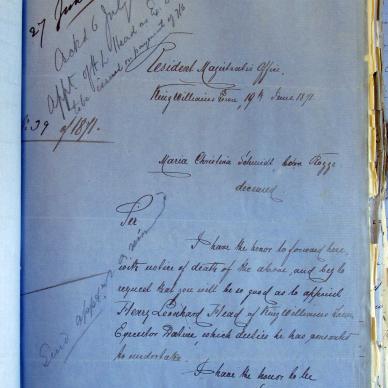 27 June
Ackd 6 July
appt of H L Head as Ex. D
to be issued on payment of 7/6
39 of 1871.
Resident Magistrates Office.
King Williams Town, 19th June 1871.
Maria Christina Schmidt born Rogge
deceased
Sir
I have the honor to forward here
with notice of death of the above, and beg to
request that you will be so good as to appoint
Henry Leonhard Head of King Williams Town
Executor Dative which duties he has consented
to undertake.
I have the honor to be
Send appt